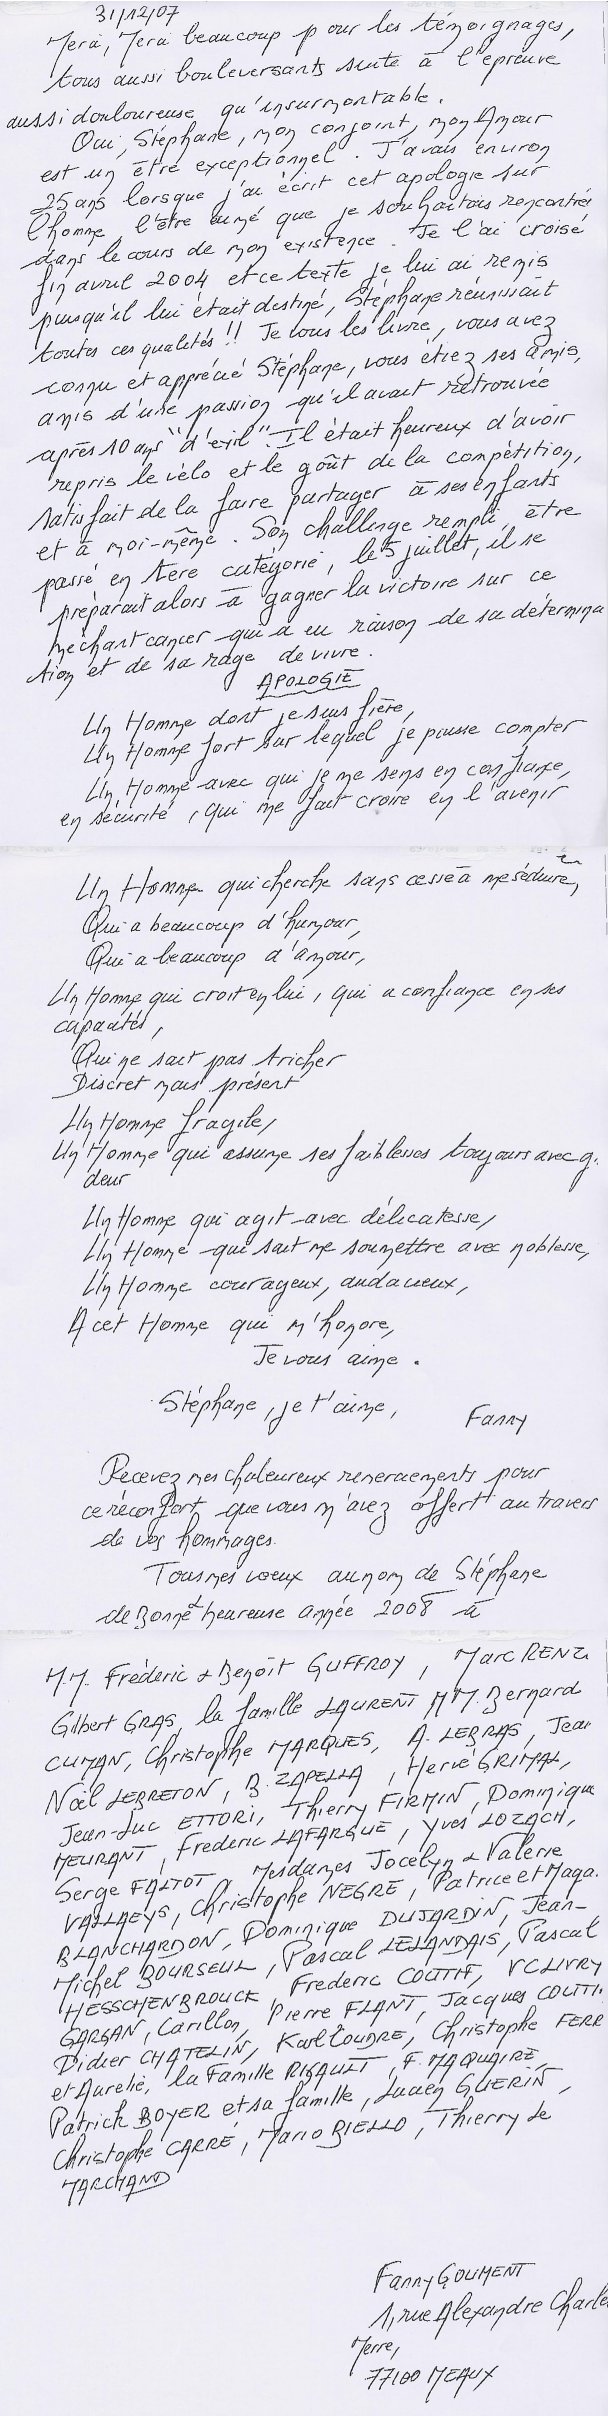 31/12/07
Merci, Merci beaucoup pour les témoignages,
tous aussi bouleversants suite à l'épreuve
aussi douloureuse qu'insurmontable.
Oui, Stéphane, mon conjoint, mon Amour
est un être exceptionnel. J'avais environ
25 ans lorsque j'ai écrit cet apologie sur
l'homme, l'être aimé que je souhaitais rencontrer
dans le cours de mon existence. Je l'ai croisé
fin avril 2004 et ce texte je lui ai remis
puisqu'il lui était destiné, Stéphane réunissait
toutes ces qualités !! Je vous les livre, vous avez
connu et apprécié Stéphane, vous étiez ses amis,
amis d'une passion qu'il avait retrouvée
après 10 ans "d'exil". Il était heureux d'avoir
repris le vélo et le goût de la compétition,
satisfait de la faire partager à ses enfants
et à moi-même. Son challenge rempli, être
passé en 1ere catégorie, le 5 juillet, il se
préparait alors à gagner la victoire sur ce
méchant cancer qui a eu raison de sa détermina
tion et de sa rage de vivre.
APOLOGIE
Un Homme dont je suis fière,
Un Homme fort sur lequel je puisse compter
Un Homme avec qui je me sens en confiance,
en sécurité, qui me fait croire en l'avenir
Un Homme qui cherche sans cesse à me séduire,
Qui a beaucoup d'humour,
Qui a beaucoup d'amour,
Un Homme qui croit en lui, qui a confiance en ses
capacités,
Qui ne sait pas tricher
Discret mais présent
Un Homme fragile,
Un Homme qui assume ses faiblesses toujours avec g.
deur
Un Homme qui agit avec délicatesse,
Un Homme qui sait me soumettre avec noblesse,
Un Homme courageux, audacieux,
A cet Homme qui m'honore,
Je vous aime.
Stéphane, je t'aime,
Fanny
Recevez mes chaleureux remerciements pour
ce réconfort que vous m'avez offert au travers
de vos hommages.
Tous mes voeux au nom de Stéphane
de Bonne & heureuse année 2008 à
M.M. Fréderic & Benoît GUFFROY, Marc RENZ
Gilbert GRAS, la famille LAURENT M M. Bernard
CUMAN, Christophe MARQUES, A. LEBRAS, Jean
Noël LEBRETON, B. ZAPELLA, Hervé GRIMAL,
Jean-Luc ETTORI, Thierry FIRMIN, Dominique
MEURANT, Frederic LAFARGUE, Yves LOZACH,
Serge FALTOT, Mesdames Jocelyn & Valerie
VALLAEYS, Christophe NEGRE, Patrice et Maga.
BLANCHARDON, Dominique DUJARDIN, Jean-
Michel BOURSEUL, Pascal LELANDAIS, Pascal
HESSCHENBROUCK, Frederic COUTTIF, VC LIVRY
GARGAN, Carillon, Pierre FLANT, Jacques COUTTI.
Didier CHATELIN, Karl COUDRE, Christophe FERR
et Aurelie, la Famille RIGAULT, F. MAQUAIRE,
Patrick BOYER et sa famille, Lucien GUERIN,
Christophe CARRE, Mario BIELLO, Thierry Le
MARCHAND
Fanny GOUMENT
1, rue Alexandre Charle
Merre,
77100 MEAUX